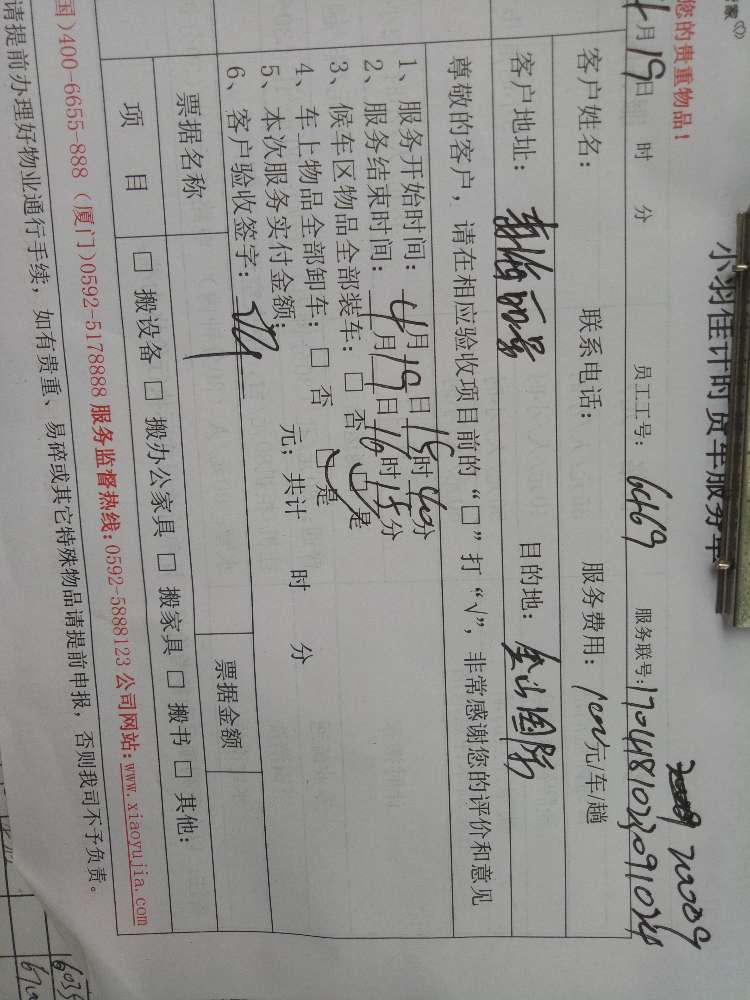 您的贵重物品！
小羽佳计时货车服务单
20009
4月19日 时 分 员工工号：6469 服务联号：
客户姓名： 联系电话： 服务费用： 元/车/趟
客户地址： 目的地：金山国际
尊敬的客户，请在相应验收项目前的“□”打“√”，非常感谢您的评价和意见
1、服务开始时间：4月19日15时40分
2、服务结束时间：4月19日16时15分
3、候车区物品全部装车：□ 否 □ 是
4、车上物品全部卸车：□ 否 □ 是
5、本次服务实付金额： 元；共计 时 分
6、客户验收签字：
票据名称 票据金额
项 目 □ 搬设备 □ 搬办公家具 □ 搬家具 □ 搬书 □ 其他：
国)400-6655-888（厦门)0592-5178888 服务监督热线:0592-5888123 公司网站:www.xiaoyujia.com
请提前办理好物业通行手续，如有贵重、易碎或其它特殊物品请提前申报，否则我司不予负责。